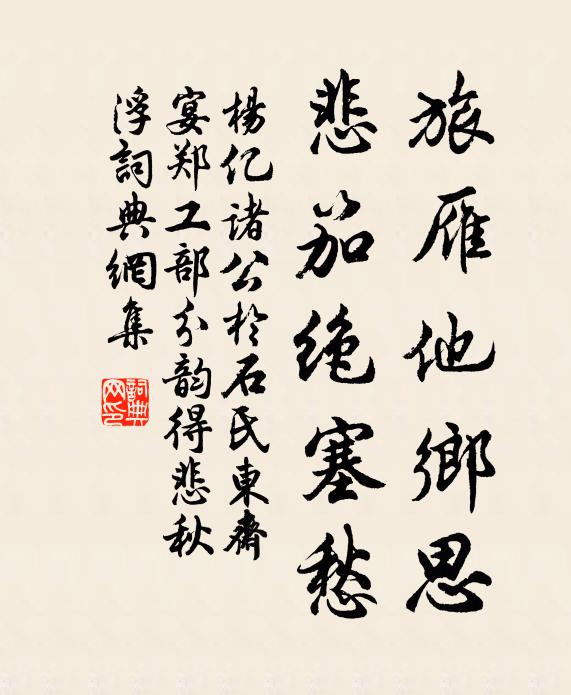 旅雁他鄉思
悲笳绝塞愁
楊亿諸公於石氏東齋
宴郑工部分韵得悲秋
浮詞典網集
詞典网印